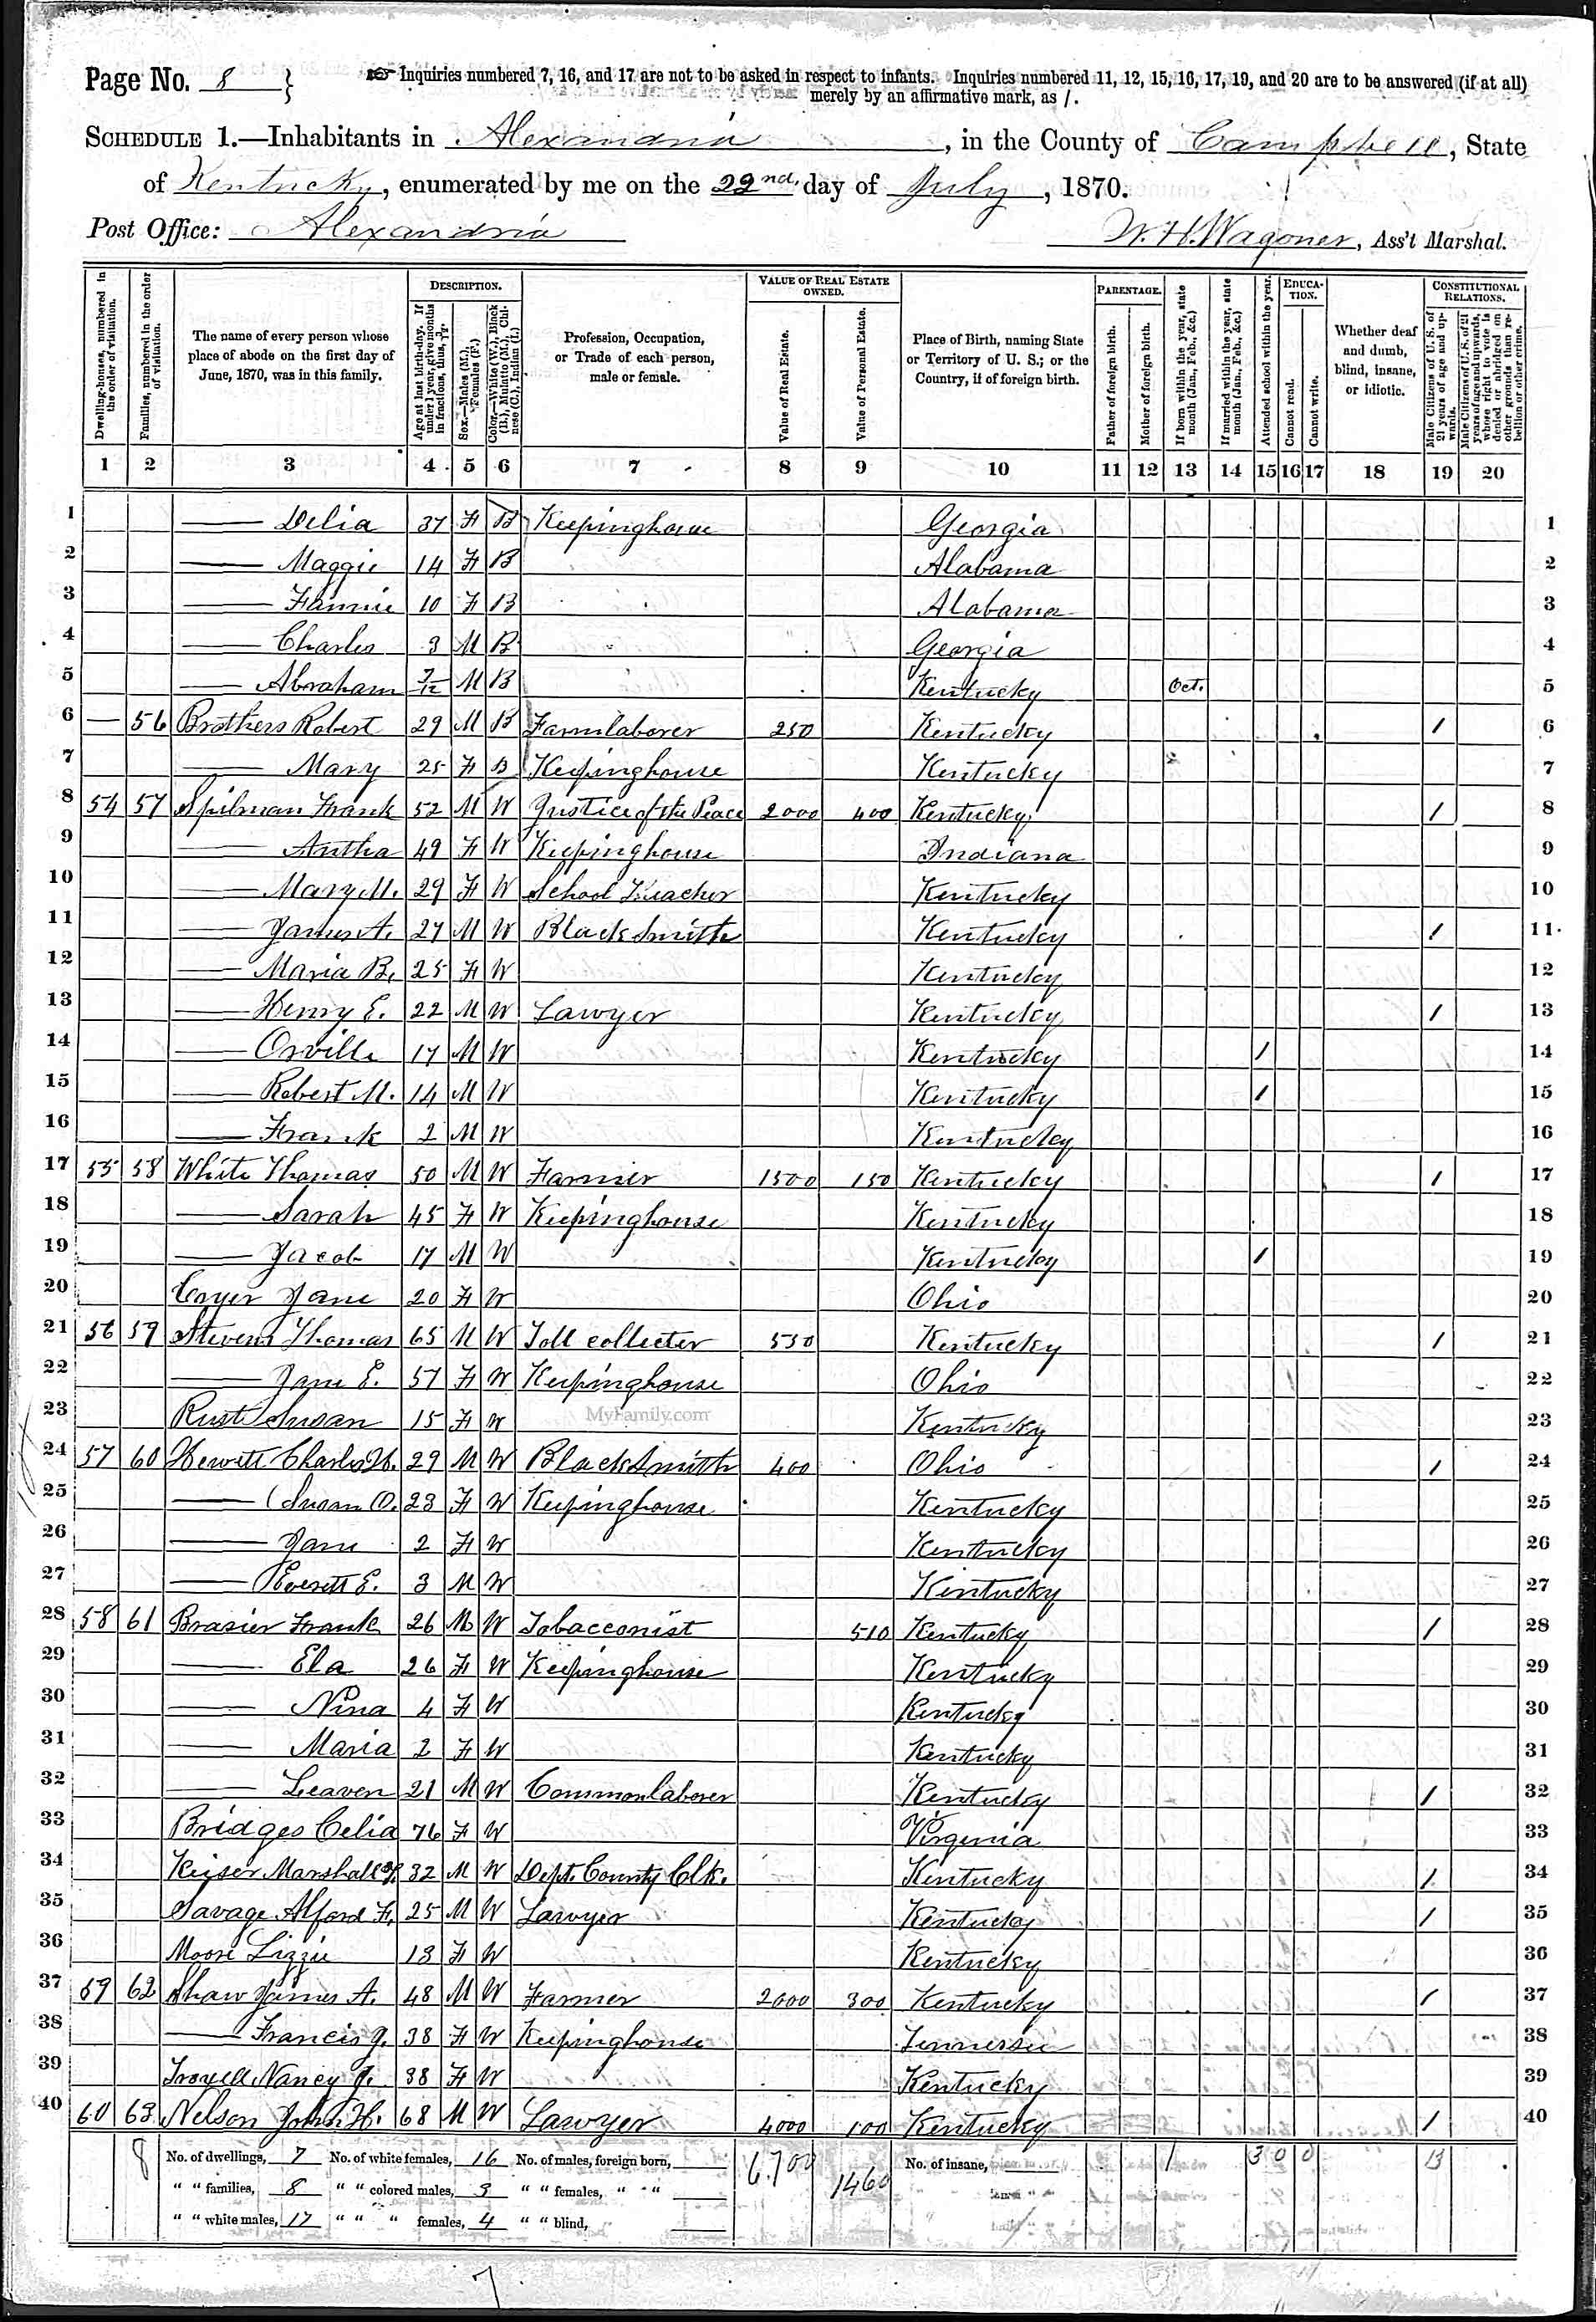 Page No. 8 } Inquiries numbered 7, 16, and 17 are not to be asked in respect to infants. Inquiries numbered 11, 12, 15, 16, 17, 19, and 20 are to be answered (if at all)
merely by an affirmative mark, as /.
SCHEDULE 1.—Inhabitants in Alexandria, in the County of Campbell, State
of Kentucky, enumerated by me on the 22nd day of July, 1870.
Post Office: Alexandria W. H. Wagoner, Ass't Marshal.
Dwelling-houses, numbered in the order of visitation.
Families, numbered in the order of visitation.
The name of every person whose place of abode on the first day of June, 1870, was in this family.
DESCRIPTION.
Age at last birth-day. If under 1 year, give months in fractions, thus, 3/12.
Sex.—Males (M.), Females (F.)
Color.—White (W.), Black (B.), Mulatto (M.), Chinese (C.), Indian (I.)
Profession, Occupation, or Trade of each person, male or female.
VALUE OF REAL ESTATE OWNED.
Value of Real Estate.
Value of Personal Estate.
Place of Birth, naming State or Territory of U. S.; or the Country, if of foreign birth.
PARENTAGE.
Father of foreign birth.
Mother of foreign birth.
If born within the year, state month (Jan., Feb., &c.)
If married within the year, state month (Jan., Feb., &c.)
Attended school within the year.
EDUCATION.
Cannot read.
Cannot write.
Whether deaf and dumb, blind, insane, or idiotic.
CONSTITUTIONAL RELATIONS.
Male Citizens of U. S. of 21 years of age and upwards.
Male Citizens of U. S. of 21 years of age and upwards, whose right to vote is denied or abridged on other grounds than rebellion or other crime.
1 2 3 4 5 6 7 8 9 10 11 12 13 14 15 16 17 18 19 20
1 — Delia 37 F B Keepinghouse Georgia 1
2 — Maggie 14 F B Alabama 2
3 — Fannie 10 F B Alabama 3
4 — Charles 3 M B Georgia 4
5 — Abraham M B Kentucky Oct. 5
6 — 56 Brothers Robert 29 M B Farmlaborer 250 Kentucky / 6
7 — Mary 25 F B Keepinghouse Kentucky 7
8 54 57 Spilman Frank 52 M W Justice of the Peace 2000 400 Kentucky / 8
9 — Antha 49 F W Keepinghouse Indiana 9
10 — Mary M. 29 F W School Teacher Kentucky 10
11 — James A. 27 M W BlackSmith Kentucky / 11
12 — Maria B. 25 F W Kentucky 12
13 — Henry E. 22 M W Lawyer Kentucky / 13
14 — Orville 17 M W Kentucky / 14
15 — Robert M. 14 M W Kentucky / 15
16 — Frank 2 M W Kentucky 16
17 55 58 White Thomas 50 M W Farmer 1500 150 Kentucky / 17
18 — Sarah 45 F W Keepinghouse Kentucky 18
19 — Jacob 17 M W Kentucky / 19
20 Jane 20 F W Ohio 20
21 56 59 Stevens Thomas 65 M W Toll collecter 550 Kentucky / 21
22 — Jane E. 57 F W Keepinghouse Ohio 22
23 Rust Susan 15 F W MyFamily.com Kentucky 23
24 57 60 Hewitt Charles H. 29 M W BlackSmith 400 Ohio / 24
25 — Susan O. 23 F W Keepinghouse Kentucky 25
26 — Jane 2 F W Kentucky 26
27 — Everett E. 3 M W Kentucky 27
28 58 61 Brasier Frank 26 M W Tobacconist 510 Kentucky / 28
29 — Ela 26 F W Keepinghouse Kentucky 29
30 — Nina 4 F W Kentucky 30
31 — Maria 2 F W Kentucky 31
32 — Leaven 21 M W Commonlaborer Kentucky / 32
33 Bridges Celia 76 F W Virginia 33
34 Keiser Marshall 32 M W Dept. County Clk. Kentucky / 34
35 Savage Alford F. 25 M W Lawyer Kentucky / 35
36 Moore Lizzie 13 F W Kentucky 36
37 59 62 Shaw James A. 48 M W Farmer 2000 300 Kentucky / 37
38 — Francis J. 38 F W Keepinghouse Tennessee 38
39 Troxell Nancy J. 38 F W Kentucky 39
40 60 63 Nelson John H. 68 M W Lawyer 4000 100 Kentucky / 40
8 No. of dwellings, 7 No. of white females, 16 No. of males, foreign born, 1460 No. of insane, 1 3 0 0 13
" " families, 8 " " colored males, 3 " " females, " "
" " white males, 17 " " " females, 4 " " blind,